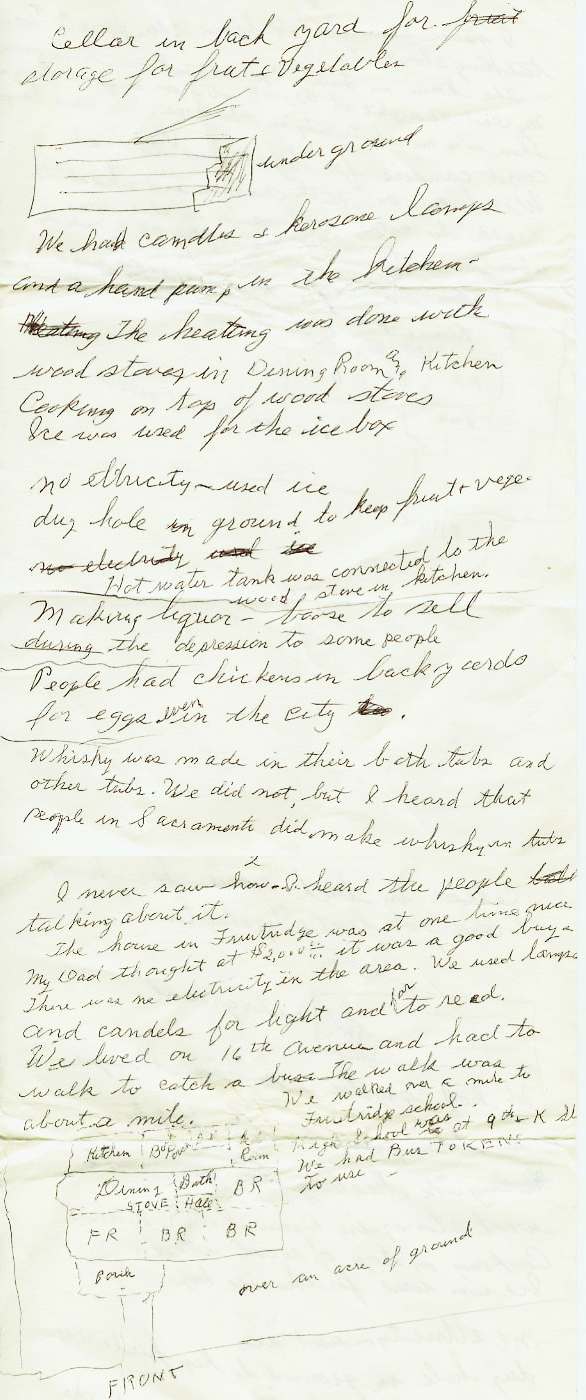 Cellar in back yard for fruit
storage for frut & Vegetables
underground
We had candles & kerosane lamps
and a hand pump in the kitchen-
Heating The heating was done with
wood stoves in Dining Room &, Kitchen
Cooking on top of wood stoves
Ice was used for the ice box
no eltricity - used ice
dug hole in ground to keep fruit + vege.
no electricity used ice
Hot water tank was connected to the
wood stove in kitchen.
Making liquor - booze to sell
during the depression to some people
People had chickens in backyards
for eggs even in the city too.
Whisky was made in their bath tubs and
other tubs. We did not, but I heard that
people in Sacramento did make whisky in tubs
I never saw how - I heard the people
talking about it.
The house in Fruitridge was at one time nice
My Dad thought at $2,000 it was a good buy -
There was no electricity in the area. We used lamps
and candels for light and for to read.
We lived on 16th Avenue and had to
walk to catch a bus. The walk was
about a mile.
We walked over a mile to
Fruitridge school.
High School was at 9th K St
We had Bus TOKENS
to use -
Kitchen
Room
Dining
Bath
BR
STOVE
Hall
FR
BR
BR
Porch
over an acre of ground
FRONT